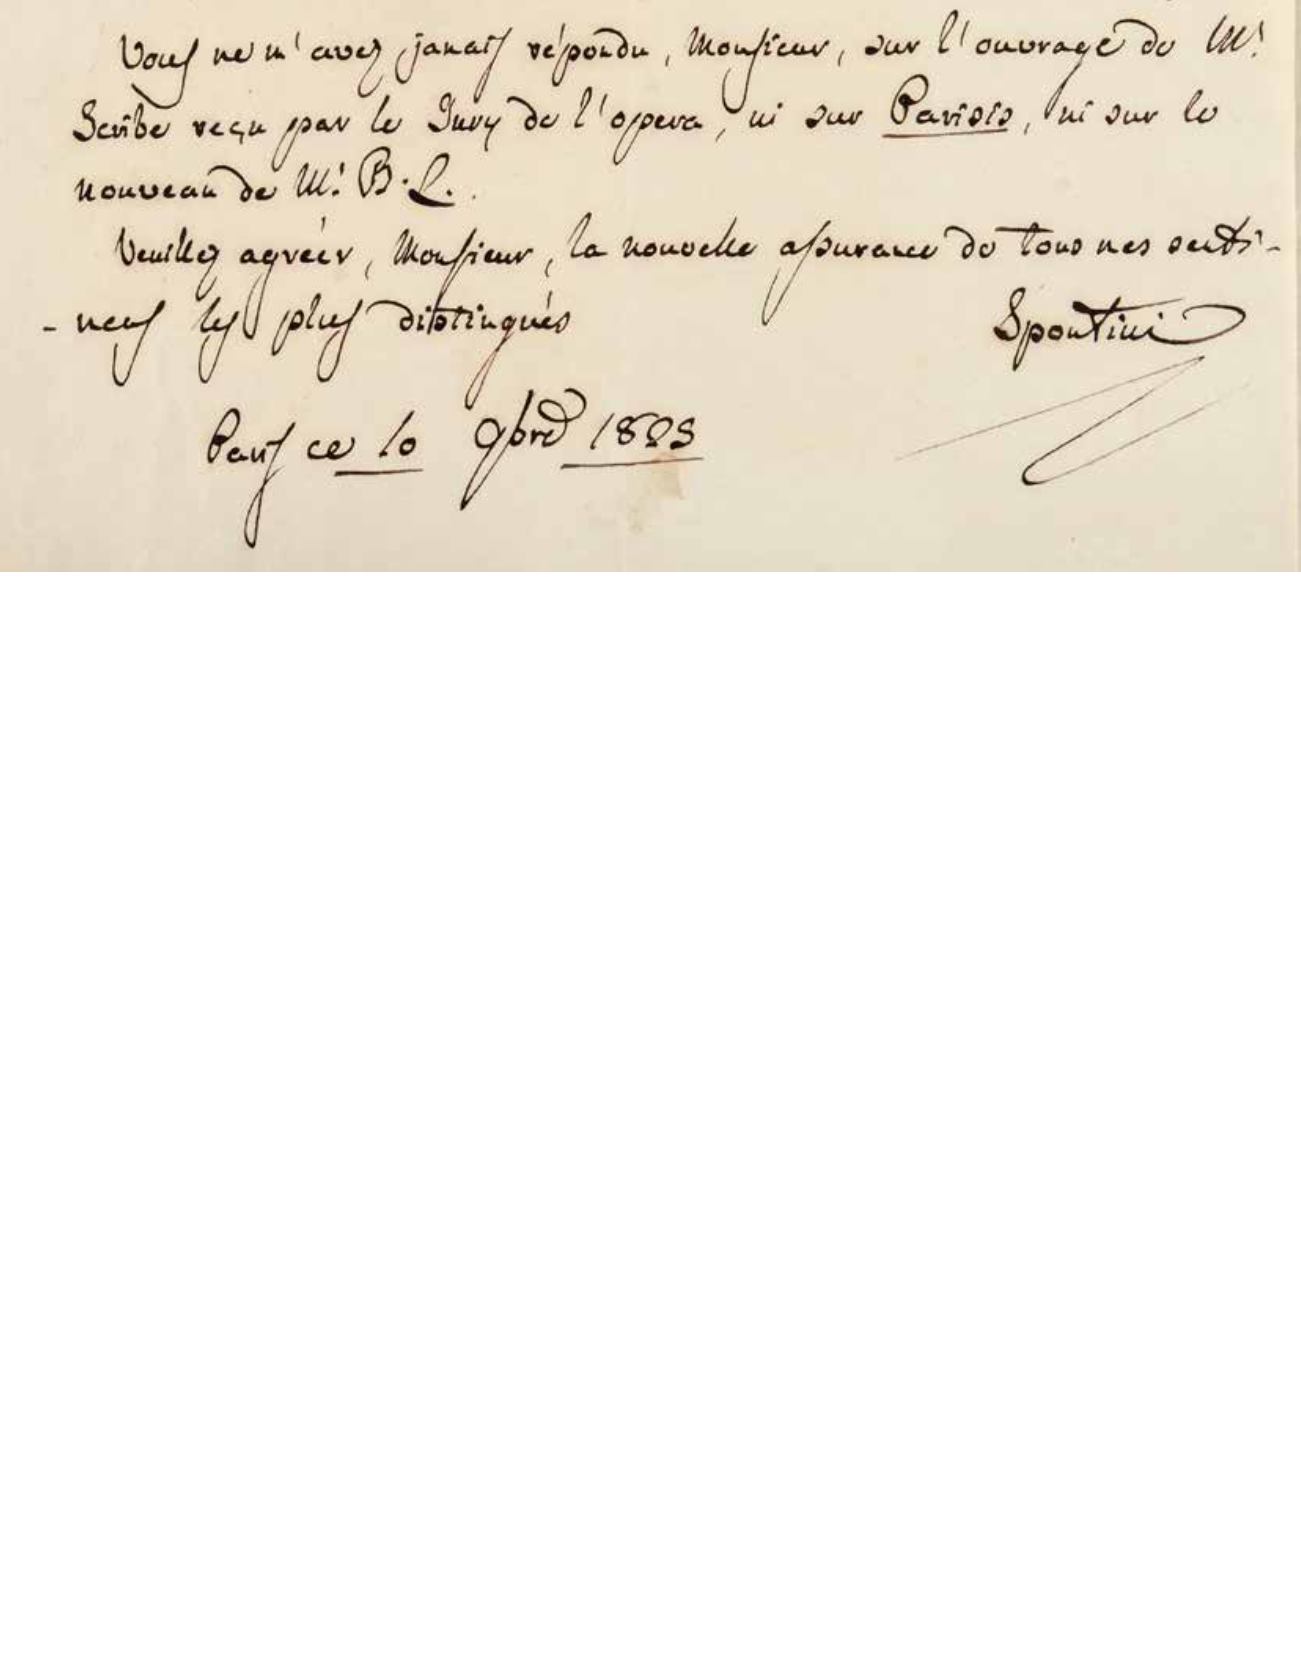 Vous ne m'avez jamais répondu, Monsieur, sur l'ouvrage de Mr.
Scribe reçu par le Jury de l'opera, ni sur Parisis, ni sur le
nouveau de Mr. B. L.
Veuillez agréer, Monsieur, la nouvelle assurance de tous mes senti-
-mens les plus distingués
Spontini
Paris ce 10 9bre